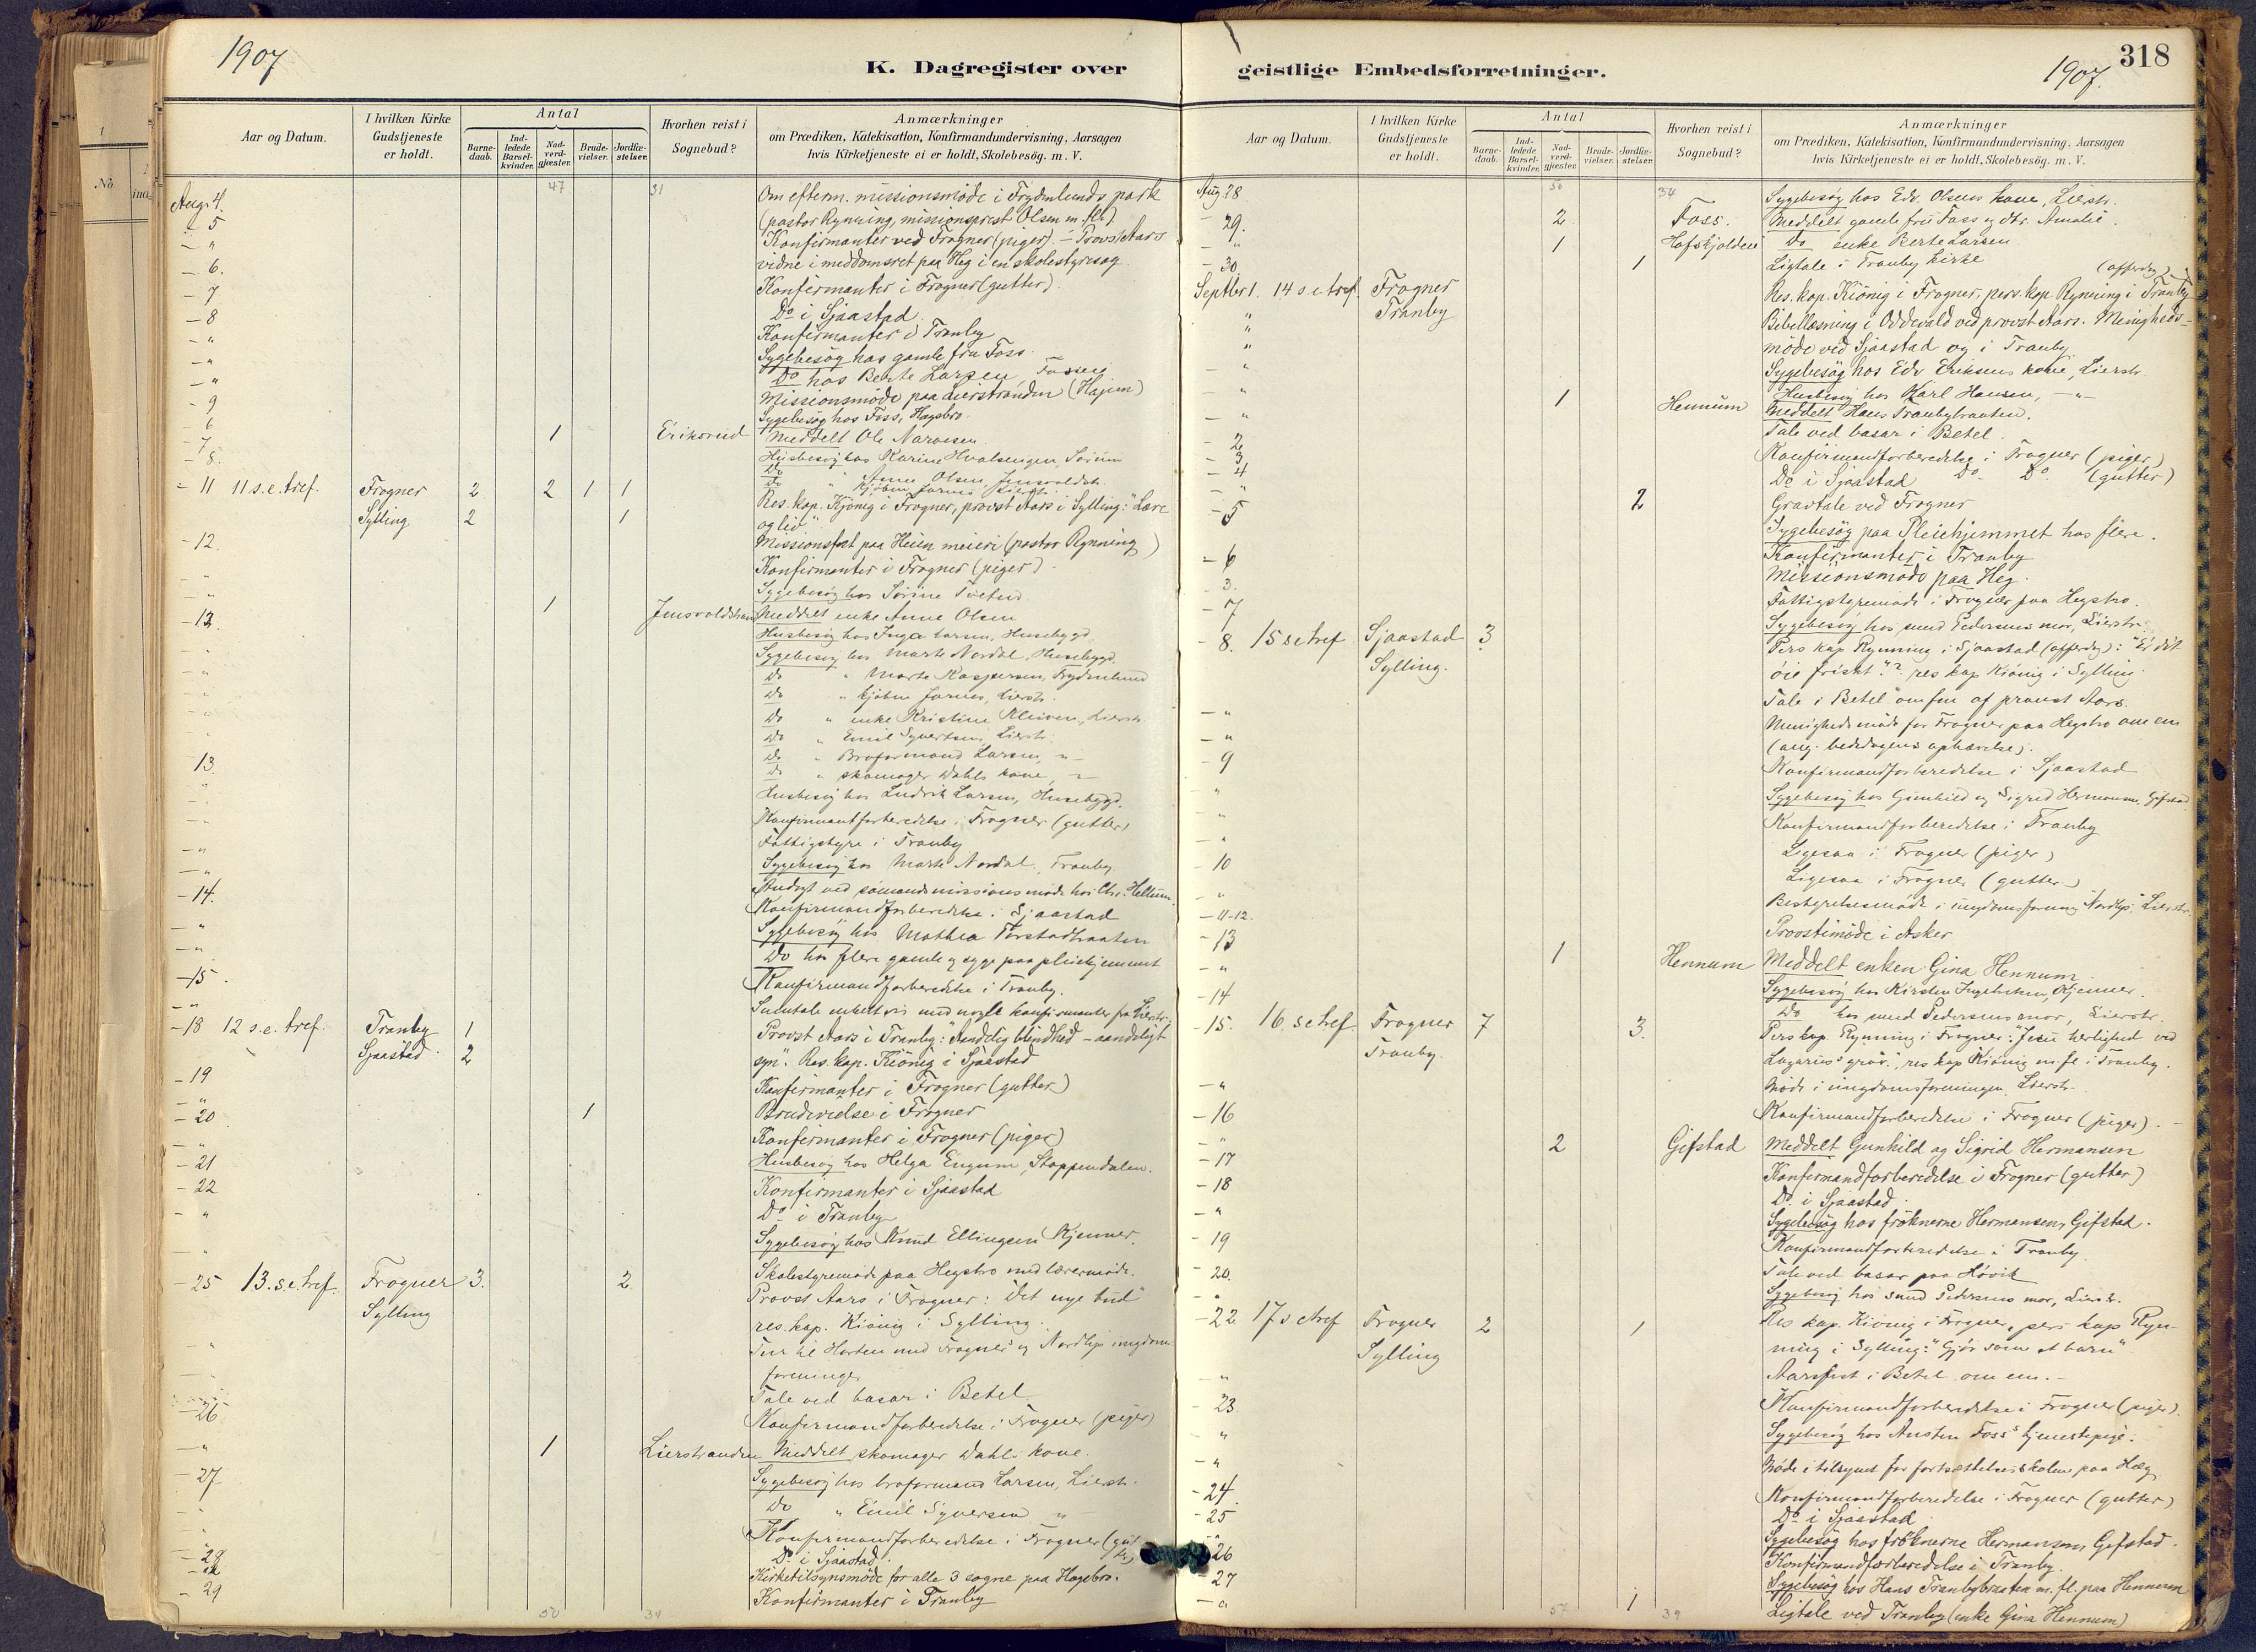 1907
K. Dagregister over
Aar og Datum.
I hvilken Kirke Gudstjeneste er holdt.
Antal
Barne-daab.
Ind-ledede Barsel-kvinder.
Nad-verd-gjæster.
Brude-vielser.
Jordfæ-stelser.
Hvorhen reist i Sognebud?
Anmærkninger
om Prædiken, Katekisation, Konfirmandundervisning, Aarsagen
hvis Kirketjeneste ei er holdt, Skolebesög. m. V.
47 31
Aug. 4. Om efterm. missionsmøde i Frydenlunds park
(pastor Rynning, missionsprest Olsen m. fl.)
- 5 Konfirmanter ved Frogner (piger). - Provst Aars
- " vidne i meddomsret paa Heg i en skolestyresag
- 6. Konfirmanter i Frogner (gutter).
- 7 Do i Sjaastad.
- 8 Konfirmanter i Tranby
- " Sygebesøg hos gamle fru Foss.
- " Do hos Berte Larsen Fossen
- " Missionsmøde paa Lierstranden
- 9 Sygebesøg hos Foss, Hegsbro.
- 6 1 Eriksrud Meddelt Ole Narvesen.
- 7 Husbesøg hos Karine
- 8. Do " Anne Olsen, Jensvoldstr.
Do
- 11 11 s. e. tref. Frogner 2 2 1 1 Res. kap. Kiønig i Frogner, provst Aars i Sylling: "Lære
Sylling 2 1 og liv".
- 12. Missionsfest paa Heien meieri (pastor Rynning)
Konfirmanter i Frogner (piger).
- " Sygebesøg hos Sørine
- " 1 Jensvoldstrand Meddelt enke Anne Olsen
- 13. Husbesøg hos Inga Larsen, Husebygd.
- " Sygebesøg hos Marte Nordal, Husebygd.
- " Do " Marte Kaspersen, Frydenlund
- " Do " Lierstr.
- " Do " enke Kristine Kleiven, Lierstr.
- " Do " Emil Syvertsen, Lierstr.
- 13. Do " Broformand Larsen, "
- " Do " skomager Dahls kone "
- " Husbesøg hos Ludvik Larsen, Husebygd.
- " Konfirmantforberedelse i Frogner (gutter)
- " Fattigstyre i Tranby
- " Sygebesøg hos Marte Nordal, Tranby
- 14. Andagt ved sømandsmissionsmøde hos Chr. Hellum.
Konfirmandforberedelse i Sjaastad
- " Sygebesøg hos Mathea
- " Do hos flere gamle og syge paa pleiehjemmet
- 15. Konfirmandforberedelse i Tranby.
- " Samtale enkeltvis med nogle konfirmanter fra Lierstr.
- 18 12 s. e. tref. Tranby 1 Provst Aars i Tranby: "Aandelig blindhed - aandeligt
Sjaastad. 2 syn". Res. kap. Kiønig i Sjaastad
- 19 Konfirmanter i Frogner (gutter)
- " 1 Brudevielse i Frogner
- 20 Konfirmanter i Frogner (piger)
- " Husbesøg hos Helga Engum, Stoppendalen.
- 21 Konfirmanter i Sjaastad
- 22 Do i Tranby
- " Sygebesøg hos Knud Ellingsen Kjenner.
- " Skolestyremøde paa Hegsbro med lærermøde.
- 25 13. s. e. tref. Frogner 3. 2 Provst Aars i Frogner: "Det nye bud"
Sylling res. kap. Kiønig i Sylling.
- " Tur til Horten med Frogner og Nordlys ungdoms-
foreninger
Tale ved basar i Betel
- 26. Konfirmandforberedelse i Frogner (piger)
- " 1 Lierstranden Meddelt skomager Dahls kone.
- 27 Sygebesøg hos broformand Larsen, Lierstr.
- " Do " Emil Syversen "
- " Konfirmandforberedelse i Frogner (gutter)
- 28 Do i Sjaastad.
- " Kirketilsynsmøde for alle 3 sogne paa Hegsbro.
- 29 Konfirmanter i Tranby
50 34
318
1907.
geistlige Embedsforretninger.
Aar og Datum.
I hvilken Kirke Gudstjeneste er holdt.
Antal
Barne-daab.
Ind-ledede Barsel-kvinder.
Nad-verd-gjæster.
Brude-vielser.
Jordfæ-stelser.
Hvorhen reist i Sognebud?
Anmærkninger
om Prædiken, Katekisation, Konfirmandundervisning, Aarsagen
hvis Kirketjeneste ei er holdt, Skolebesög. m. V.
50 34
Aug. 28. Sygebesøg hos Edv. Olsens kone, Lierstr.
- 29. 2 Foss. Meddelt gamle fru Foss og dtr. Amalie.
- " 1 Do enke Berte Larsen.
- 30. 1 Ligtale i Tranby kirke
Septbr 1. 14 s. e. tref. Frogner Res. kap. Kiønig i Frogner, pers. kap. Rynning i Tranby (offerdag)
" Tranby Bibellæsning i Oddevald ved provst Aars. Menigheds-
" møde ved Sjaastad og i Tranby
- " Sygebesøg hos Edv Eriksens kone, Lierstr.
- " Husbesøg hos Karl Hansen, - " -
- " 1 Hennum Meddelt Hans Tranbybraaten.
- " Tale ved basar i Betel.
- 2 Konfirmandforberedelse i Frogner (piger)
- 3. Do i Sjaastad Do. Do. (gutter)
- 4 2 Gravtale ved Frogner
- 5 Sygebesøg paa Pleiehjemmet hos flere.
Konfirmanter i Tranby
- 6 Missionsmøde paa Heg.
- 3. Fattigstyremøde i Frogner paa Hegsbro.
- 7 Sygebesøg hos smed Pedersens mor, Lierstr.
- 8. 15 s e tref Sjaastad 3 Pers kap Rynning i Sjaastad (offerdag): "Er dit
Sylling. øie friskt"? res kap Kiønig i Sylling.
- " Tale i Betel om em af provst Aars.
- " Menighedsmøde for Frogner paa Hegsbro om em
(ang. bededagens ophævelse).
- 9 Konfirmandforberedelse i Sjaastad
- " Sygebesøg hos Gunhild og Sigrid Hermansen, Gifstad
- " Konfirmandforberedelse i Tranby
- " Ligesaa i Frogner (piger)
- 10 Ligesaa i Frogner (gutter)
- " Bestyrelsesmøde i ungdomsforening "Nordlys", Lierstr.
- 11-12. Provstimøde i Asker
- 13 1 Hennum Meddelt enken Gina Hennum
- " Sygebesøg hos Kirsten Kjenner.
- 14 Do hos smed Pedersens mor, Lierstr.
- 15. 16 s e tref. Frogner 7 3. Pers kap. Rynning i Frogner: "Jesu herlighed ved
Tranby. Lazarus' grav", res kap Kiønig m. fl. i Tranby.
- " Møde i ungdomsforeningen Lierstr.
- 16 Konfirmandforberedelse i Frogner (piger).
- " 2 Gifstad Meddelt Gunhild og Sigrid Hermansen
- 17 Konfirmandforberedelse i Frogner (gutter)
- 18 Do i Sjaastad.
- " Sygebesøg hos frøknerne Hermansen, Gifstad.
- 19 Konfirmandforberedelse i Tranby.
- 20. Tale ved basar paa Høvik
- " Sygebesøg hos smed Pedersens mor, Lierstr.
- 22 17 s e tref Frogner 2 1 Res kap. Kiønig i Frogner, pers kap Ryn-
Sylling ning i Sylling: "Gjør som et barn".
- " Aarsfest i Betel om em. -
- 23. Konfirmandforberedelse i Frogner (piger).
- " Sygebesøg hos Austen Foss' tjenestepige.
- " Møde i tilsynet for fortsættelsesskolen paa Heg
- 24. Konfirmandforberedelse i Frogner (gutter)
- 25 Do i Sjaastad
- " Sygebesøg hos frøknerne Hermansen, Gifstad.
26 Konfirmandforberedelse i Tranby.
- 27 Sygebesøg hos Hans Tranbybraaten m. fl. paa Hennum
- " 1 Ligtale ved Tranby (enke Gina Hennum)
57 39